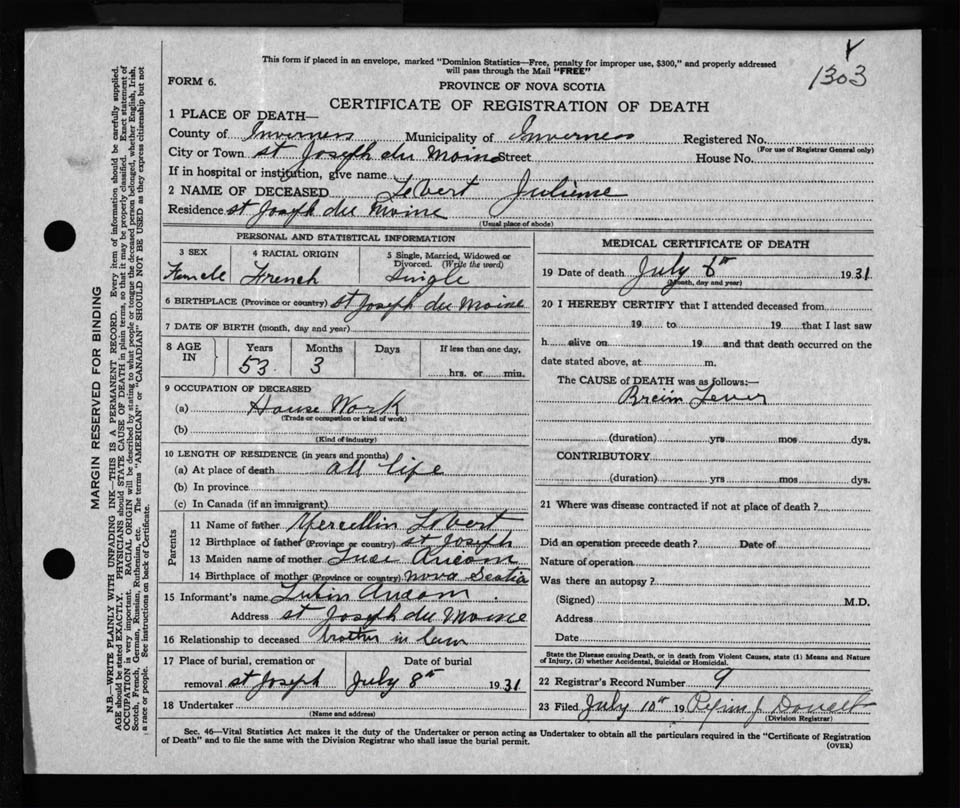 1303
This form if placed in an envelope, marked "Dominion Statistics—Free, penalty for improper use, $300," and properly addressed
will pass through the Mail "FREE"
FORM 6.
PROVINCE OF NOVA SCOTIA
CERTIFICATE OF REGISTRATION OF DEATH
1 PLACE OF DEATH—
County of Inverness Municipality of Inverness Registered No.
(For use of Registrar General only)
City or Town St Joseph du Moine Street House No.
If in hospital or institution, give name
2 NAME OF DECEASED LeBert Julienne
Residence St Joseph du Moine
(Usual place of abode)
PERSONAL AND STATISTICAL INFORMATION
3 SEX 4 RACIAL ORIGIN 5 Single, Married, Widowed or
Divorced. (Write the word)
Female French Single
6 BIRTHPLACE (Province or country) St Joseph du Moine
7 DATE OF BIRTH (month, day and year)
8 AGE IN Years Months Days If less than one day,
53 3 hrs. or min.
9 OCCUPATION OF DECEASED
(a) House Work
(Trade or occupation or kind of work)
(b)
(Kind of industry)
10 LENGTH OF RESIDENCE (in years and months)
(a) At place of death all life
(b) In province
(c) In Canada (if an immigrant)
Parents
11 Name of father LeBert
12 Birthplace of father (Province or country) St Joseph
13 Maiden name of mother Aucoin
14 Birthplace of mother (Province or country) Nova Scotia
15 Informant's name Aucoin
Address St Joseph du Moine
16 Relationship to deceased brother in law
17 Place of burial, cremation or Date of burial
removal St Joseph July 8th 1931
18 Undertaker
(Name and address)
MEDICAL CERTIFICATE OF DEATH
19 Date of death July 6th 1931
(Month, day and year)
20 I HEREBY CERTIFY that I attended deceased from
19 to 19 that I last saw
h alive on 19 and that death occurred on the
date stated above, at m.
The CAUSE of DEATH was as follows:—
Brein Fever
(duration) yrs mos dys.
CONTRIBUTORY
(duration) yrs mos dys.
21 Where was disease contracted if not at place of death?
Did an operation precede death? Date of
Nature of operation
Was there an autopsy?
(Signed) M.D.
Address
Date
State the Disease causing Death, or in death from Violent Causes, state (1) Means and Nature
of Injury, (2) whether Accidental, Suicidal or Homicidal.
22 Registrar's Record Number 9
23 Filed July 10th 19
(Division Registrar)
Sec. 46—Vital Statistics Act makes it the duty of the Undertaker or person acting as Undertaker to obtain all the particulars required in the "Certificate of Registration
of Death" and to file the same with the Division Registrar who shall issue the burial permit.
(OVER)
MARGIN RESERVED FOR BINDING
N.B.—WRITE PLAINLY WITH UNFADING INK—THIS IS A PERMANENT RECORD. Every item of information should be carefully supplied.
AGE should be stated EXACTLY. PHYSICIANS should STATE CAUSE OF DEATH in plain terms, so that it may be properly classified. Exact statement of
OCCUPATION is very important. RACIAL ORIGIN will be described by stating to what people or tongue the deceased person belonged, whether English, Irish,
Scotch, French, German, Russian, Ruthenian, etc. The terms "AMERICAN" or "CANADIAN" SHOULD NOT BE USED as they express citizenship but not
a race or people. See instructions on back of Certificate.